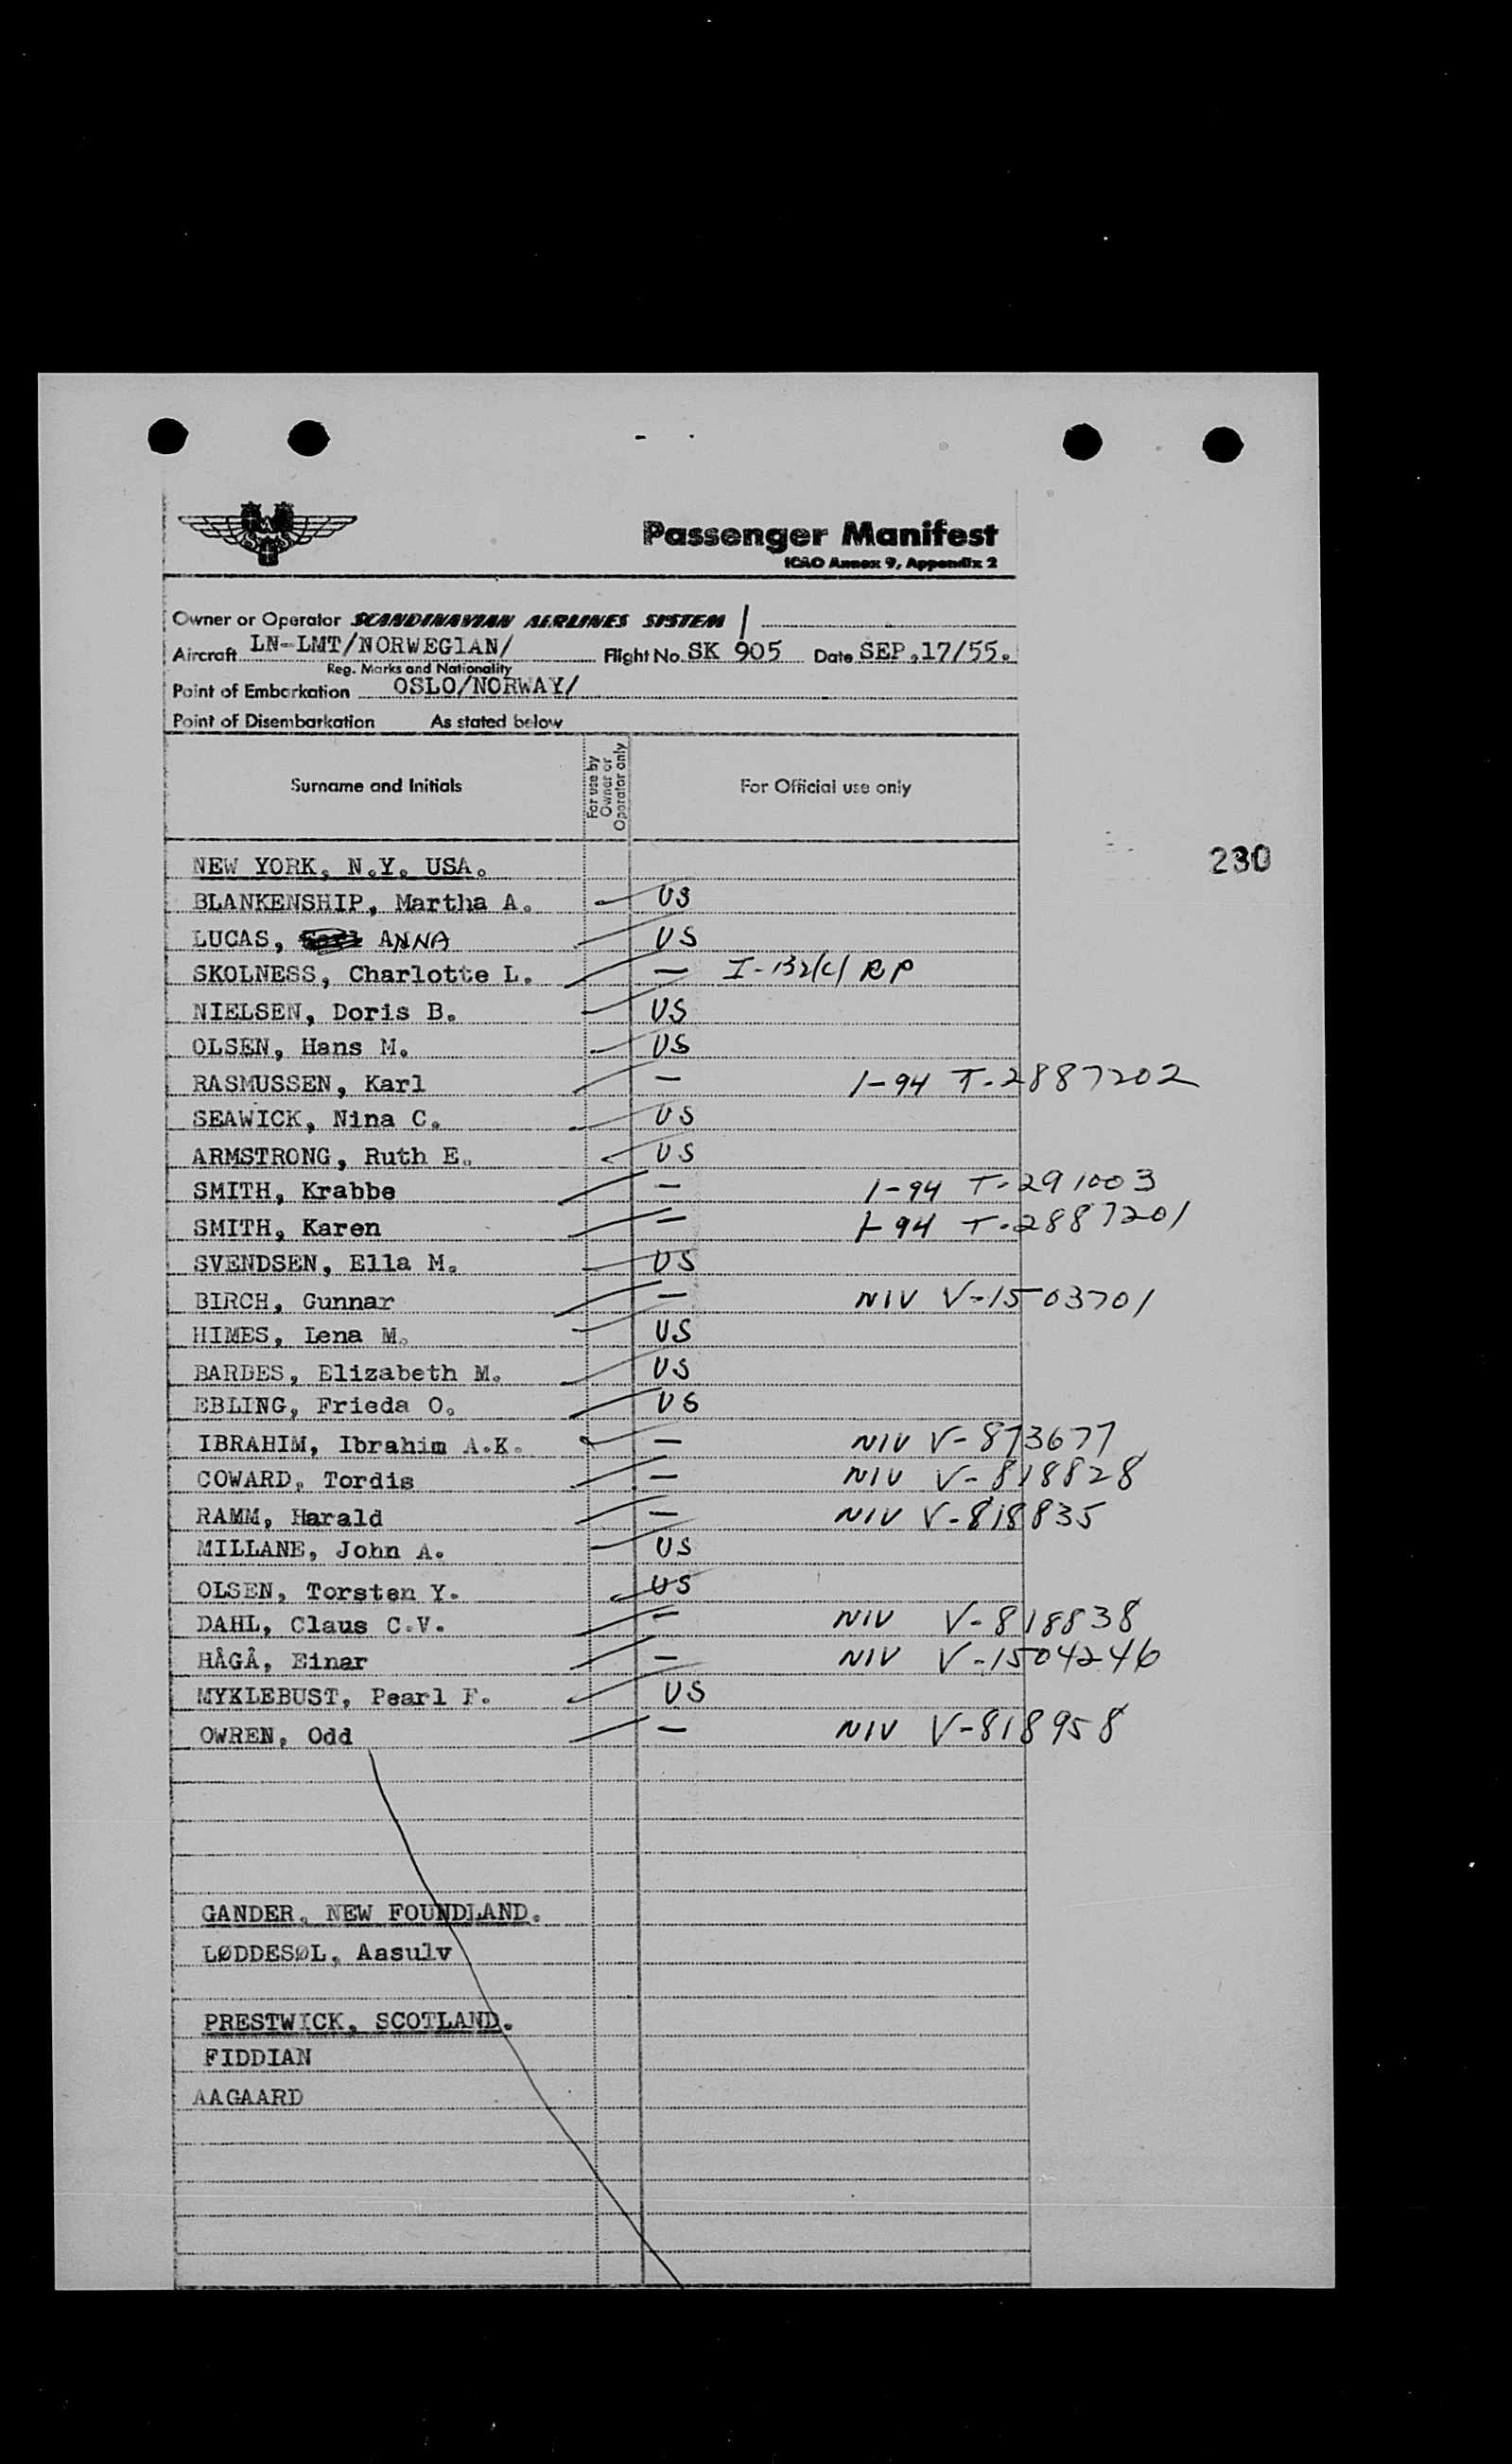 Passenger Manifest
ICAO Annex 9, Appendix 2
Owner or Operator SCANDINAVIAN AIRLINES SYSTEM
Aircraft LN-LMT/NORWEGIAN/ Flight No. SK 905 Date SEP,17/55.
Reg. Marks and Nationality
Point of Embarkation OSLO/NORWAY/
Point of Disembarkation As stated below
Surname and Initials For use by Owner or Operator only For Official use only
NEW YORK, N.Y. USA.
230
BLANKENSHIP, Martha A. US
LUCAS, ANNA US
SKOLNESS, Charlotte L. — I-132/c/ RP
NIELSEN, Doris B. US
OLSEN, Hans M. US
RASMUSSEN, Karl — I-94 T-2887202
SEAWICK, Nina C. US
ARMSTRONG, Ruth E. US
SMITH, Krabbe — I-94 T-291003
SMITH, Karen — I-94 T-2887201
SVENDSEN, Ella M. US
BIRCH, Gunnar — NIV V-1503701
HIMES, Lena M. US
BARDES, Elizabeth M. US
EBLING, Frieda O. US
IBRAHIM, Ibrahim A.K. — NIV V-873677
COWARD, Tordis — NIV V-818828
RAMM, Harald — NIV V-818835
MILLANE, John A. US
OLSEN, Torsten Y. US
DAHL, Claus C.V. — NIV V-818838
HÂGÂ, Einar — NIV V-1504246
MYKLEBUST, Pearl F. US
OWREN, Odd — NIV V-818958
GANDER, NEW FOUNDLAND.
LØDDESØL, Aasulv
PRESTWICK, SCOTLAND.
FIDDIAN
AAGAARD